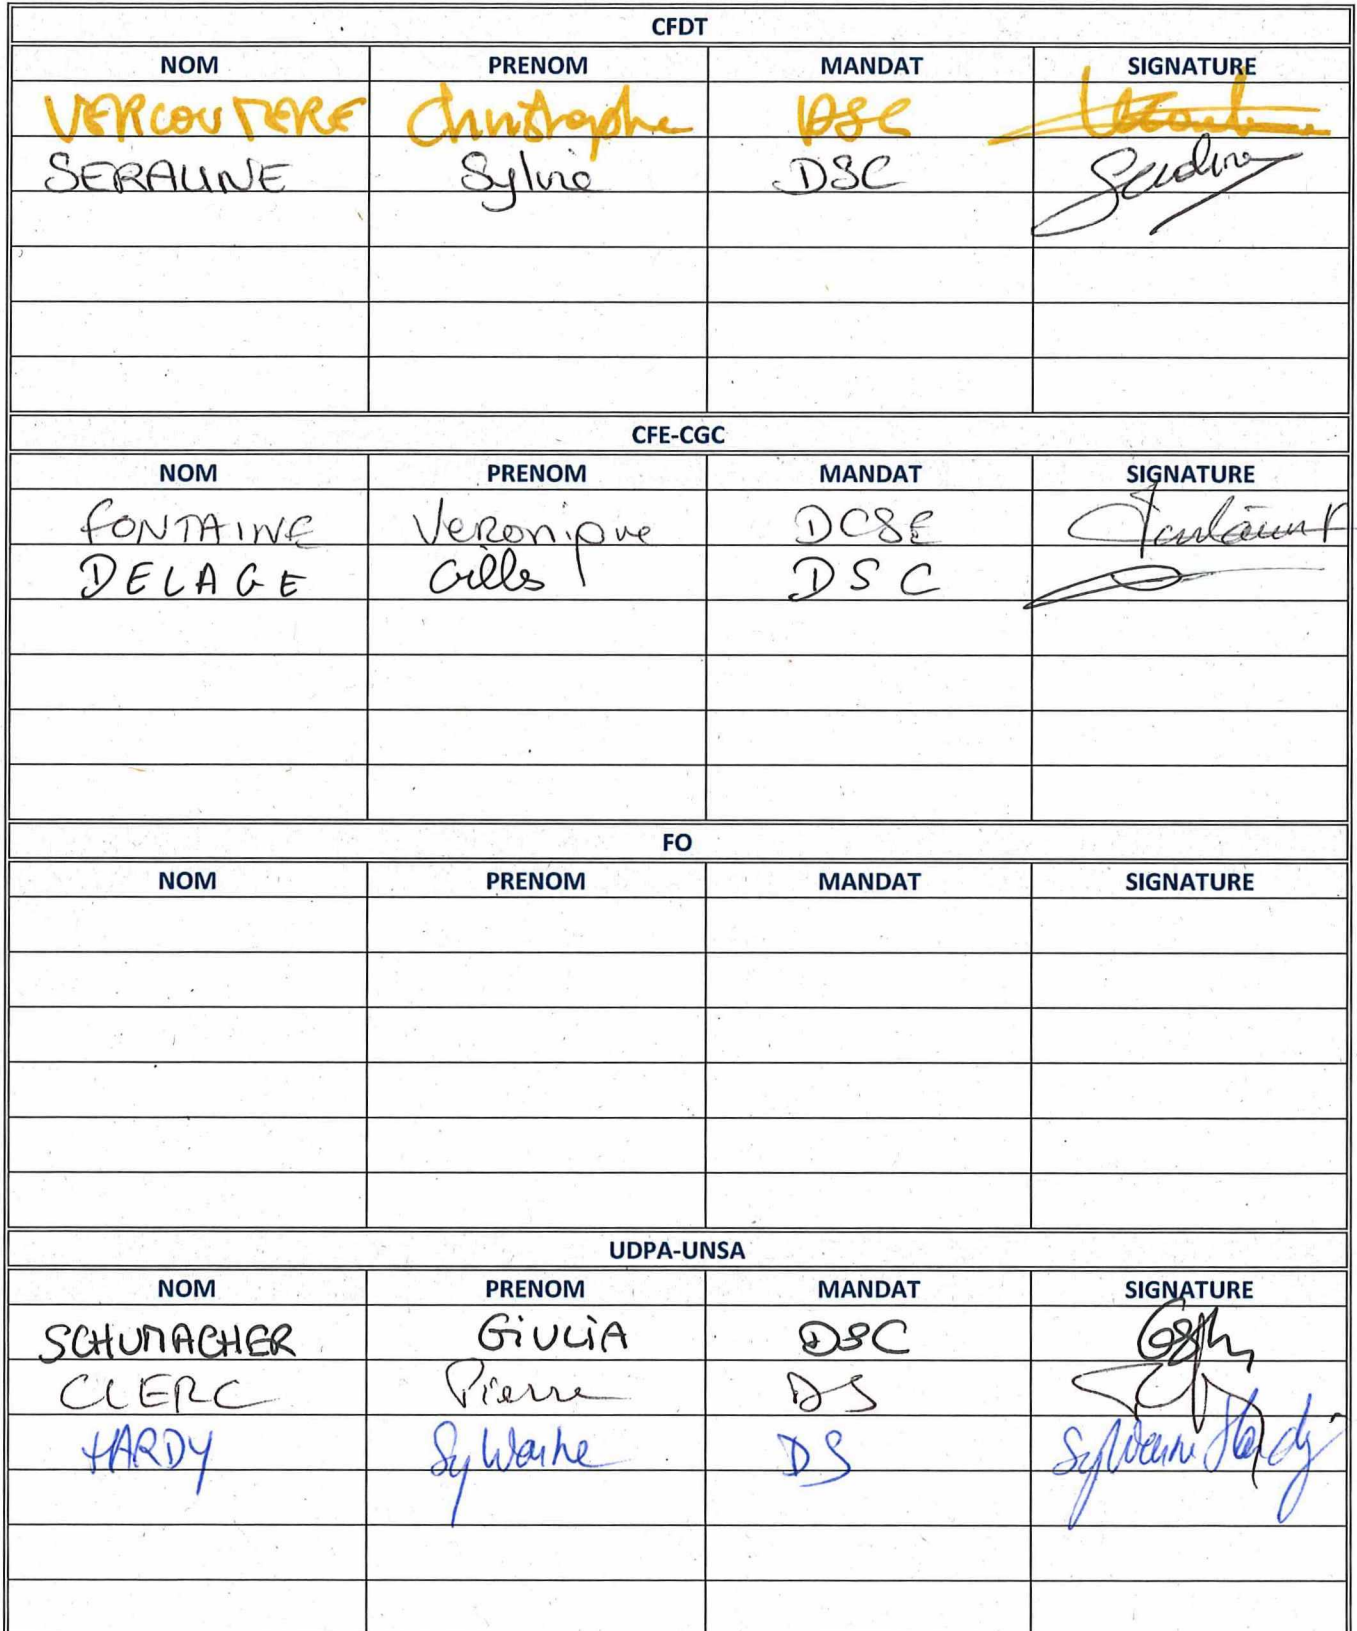 CFDT
NOM PRENOM MANDAT SIGNATURE
VERCOUTERE Christophe DSC
SERALINE Sylvie DSC
CFE-CGC
NOM PRENOM MANDAT SIGNATURE
FONTAINE Veronique DCSE
DELAGE Gilles DSC
FO
NOM PRENOM MANDAT SIGNATURE
UDPA-UNSA
NOM PRENOM MANDAT SIGNATURE
SCHUMACHER GiULiA DSC
CLERC Pierre DS
HARDY Sylvaine DS Sylvaine Hardy